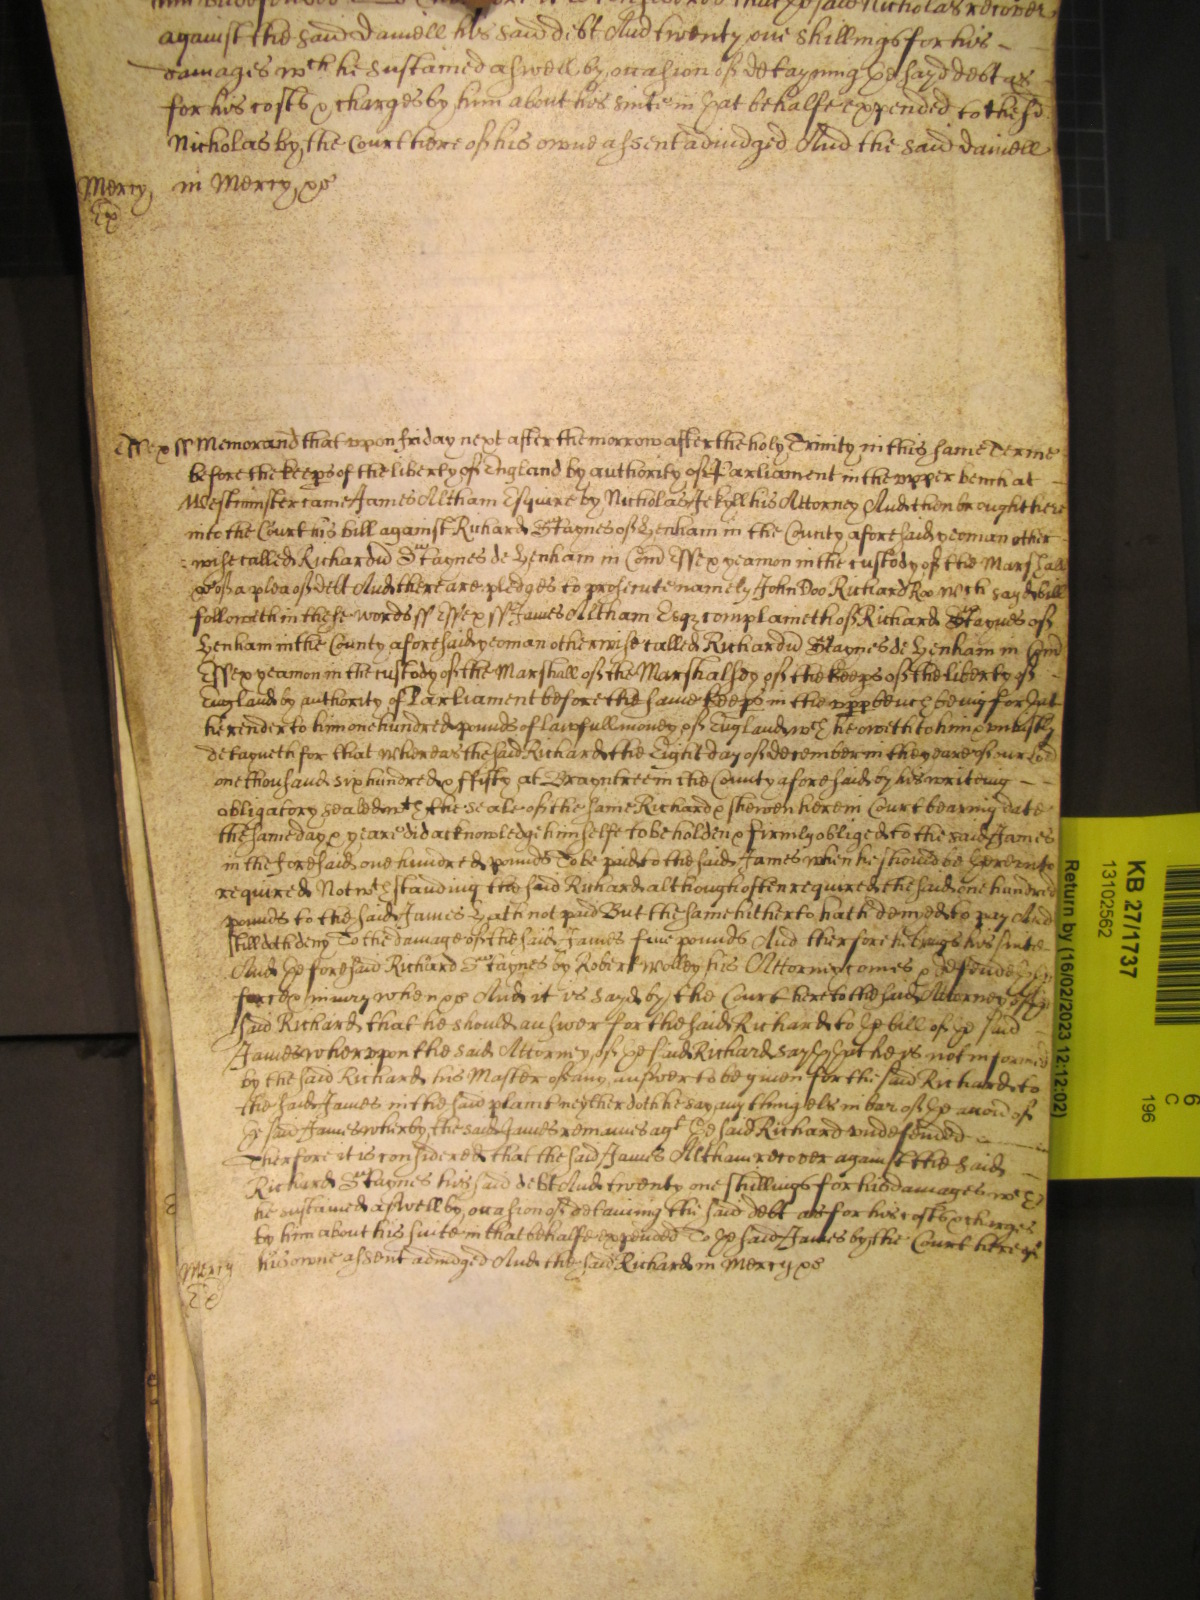 against the said Daniell his said debt And twenty one shillings for his
damages wch he sustained aswell by occasion of detayning ye sayd debt as
for his costs & charges by him about his suite in yat behalfe expended to the sd
Nicholas by the Court here of his owne assent adiudged And the said Daniell
Mercy in Mercy &c
Essex ss Memorand that vpon friday next after the morrow after the holy Trinity in this same Terme
before the keeps of the liberty of England by authority of Parliament in the vpper bench at
Westminster came James Altham Esquire by Nicholas Jekyll his Attorney And then brought here
into the Court his bill against Richard Staynes of Henham in the County aforesaid yeoman other
wise called Richard Staynes de Henham in Com Essex yeamon in the custody of the Marshall
&c of a plea of debt And there are pledges to prosecute namely John Doo Richard Roo Wch sayd bill
followeth in these words ss Essex ss James Altham Esqz complaineth of Richard Staynes of
Henham in the County aforesaid yeoman otherwise called Richard Staynes de Henham in Com
Essex yeamon in the custody of the Marshall of the Marshalsey of the keeps of the liberty of
England by authority of Parliament before the same keeps in the vpp bench being for yat
he render to him one hundred pounds of lawfull money of England wch he oweth to him & vniustly
detayneth for that whereas the said Richard the Eight day of december in the yeare of our Lord
one thousand six hundred & ffifty at Brayntree in the County aforesaid by his writeing
obligatory sealed wth the seale of the same Richard & shewen here in Court bearing date
the same day & yeare did acknowledge himselfe to be holden & firmly obliged to the said James
in the foresaid one hundred pounds To be paid to the said James when he should be yereunto
required Notwthstanding the said Richard although often required the said one hundred
pounds to the said James hath not paid But the same hitherto hath denyed to pay And
still doth deny To the damage of the said James fiue pounds And therfore he brings his suite
And ye foresaid Richard Staynes by Robert Wolley his Attorney comes & defends ye
force & iniury when &c And it is sayd by the Court here to the said Attorney of ye
said Richard that he should answer for the said Richard to ye bill of ye said
James wherupon the said Attorney of ye said Richard sayth yat he is not informed
by the said Richard his Master of any answer to be giuen for the said Richard to
the said James in the said plaint neyther doth he say any thing els in bar of ye accōn of
ye said James wherby the said James remaines agt ye said Richard vndefended
Therfore it is considered that the said James Altham recover against the said
Richard Staynes his said debt And twenty one shillings for his damages wch
he sustained aswell by occasion of detaining the said debt as for his costs & charges
by him about his suite in that behalfe expended To ye said James by the Court here of
his owne assent adiudged And the said Richard in Mercy &c
Mercy
KB 27/1737
13102562
Return by (16/02/2023 12:12:02)
6
C
196